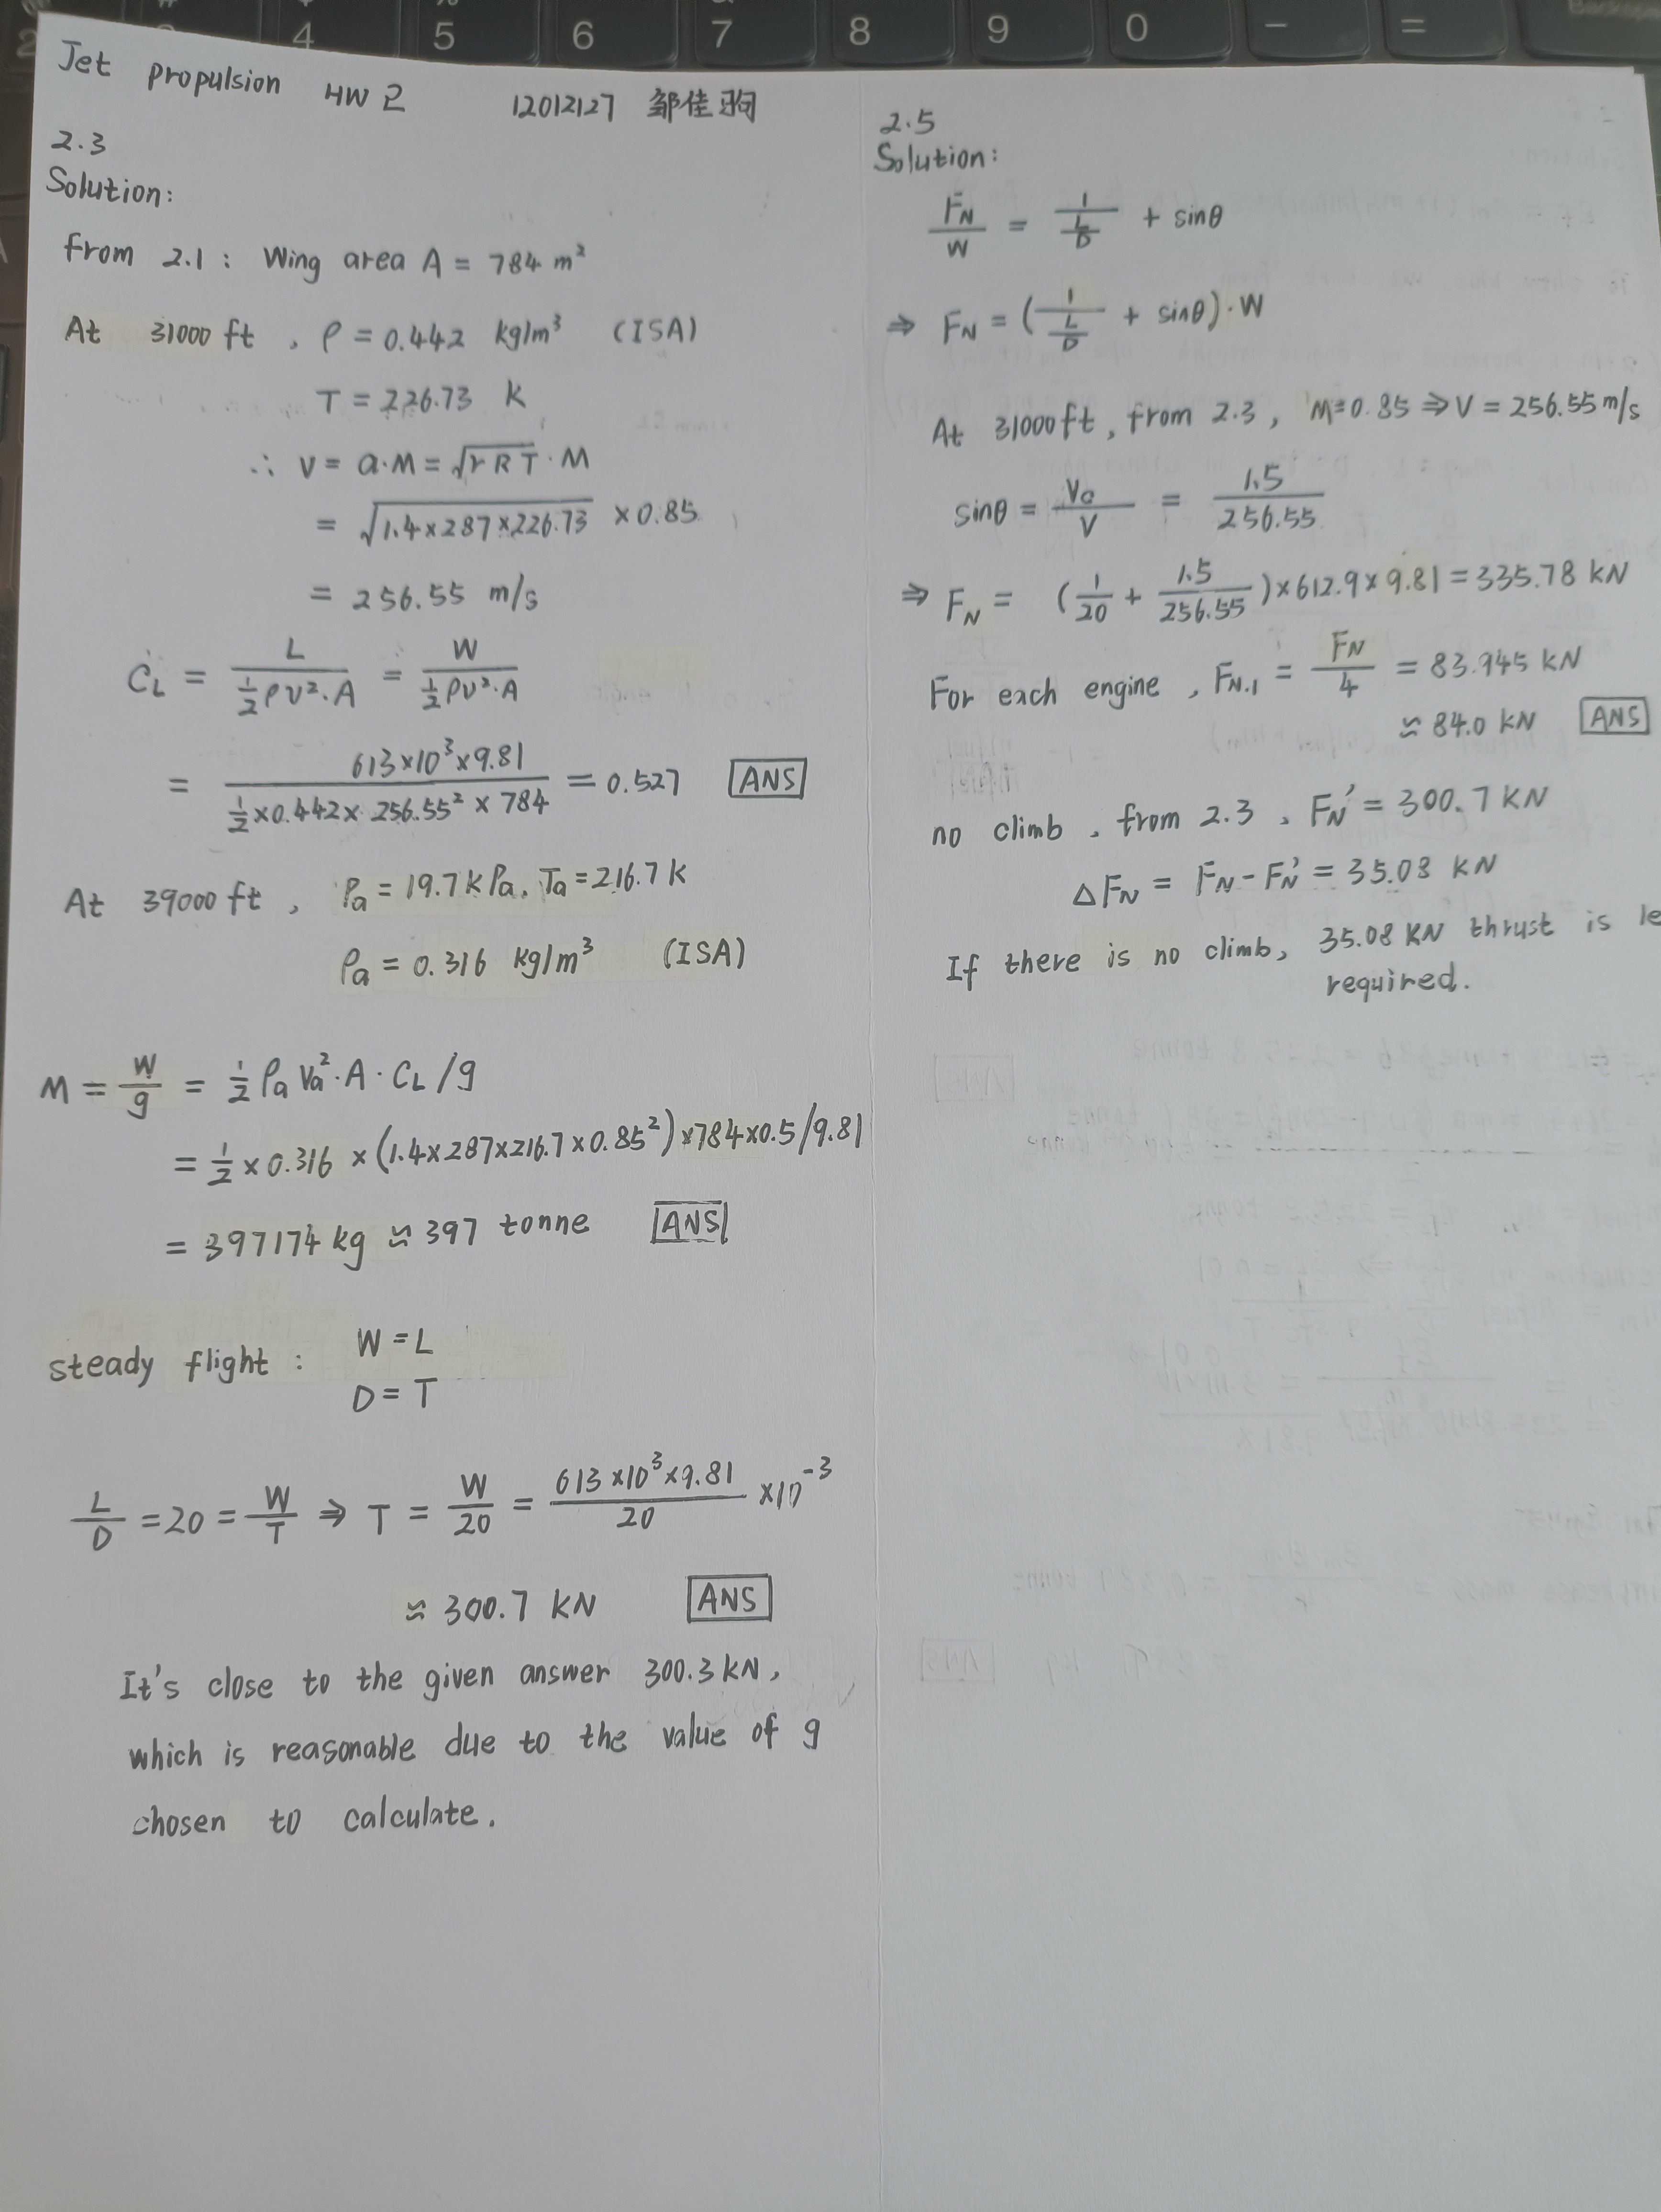 4 5 6 7 8 9 0 - =
Jet propulsion HW 2 12012127 邹佳驹
2.3
Solution:
from 2.1: Wing area A = 784 m²
At 31000 ft, ρ = 0.442 kg/m³ (ISA)
T = 226.73 K
∴ V = a·M = √(γRT)·M
= √(1.4×287×226.73) ×0.85
= 256.55 m/s
C_L = L/(½ρV²·A) = W/(½ρV²·A)
= (613×10³×9.81)/(½×0.442×256.55²×784) = 0.527 ANS
At 39000 ft, Pa = 19.7 kPa, Ta = 216.7 K
ρa = 0.316 kg/m³ (ISA)
M = W/g = ½ρa Va²·A·C_L/g
= ½×0.316×(1.4×287×216.7×0.85²)×784×0.5/9.81
= 397174 kg ≈ 397 tonne ANS
steady flight: W = L
D = T
L/D = 20 = W/T ⇒ T = W/20 = (613×10³×9.81)/20 ×10⁻³
≈ 300.7 KN ANS
It's close to the given answer 300.3 kN,
which is reasonable due to the value of g
chosen to calculate.
2.5
Solution:
F_N/W = 1/(L/D) + sinθ
⇒ F_N = (1/(L/D) + sinθ)·W
At 31000 ft, from 2.3, M=0.85 ⇒ V = 256.55 m/s
sinθ = Va/V = 1.5/256.55
⇒ F_N = (1/20 + 1.5/256.55)×612.9×9.81 = 335.78 kN
For each engine, F_N.1 = F_N/4 = 83.945 kN
≈ 84.0 kN ANS
no climb, from 2.3, F_N' = 300.7 KN
ΔF_N = F_N - F_N' = 35.08 KN
If there is no climb, 35.08 KN thrust is le
required.